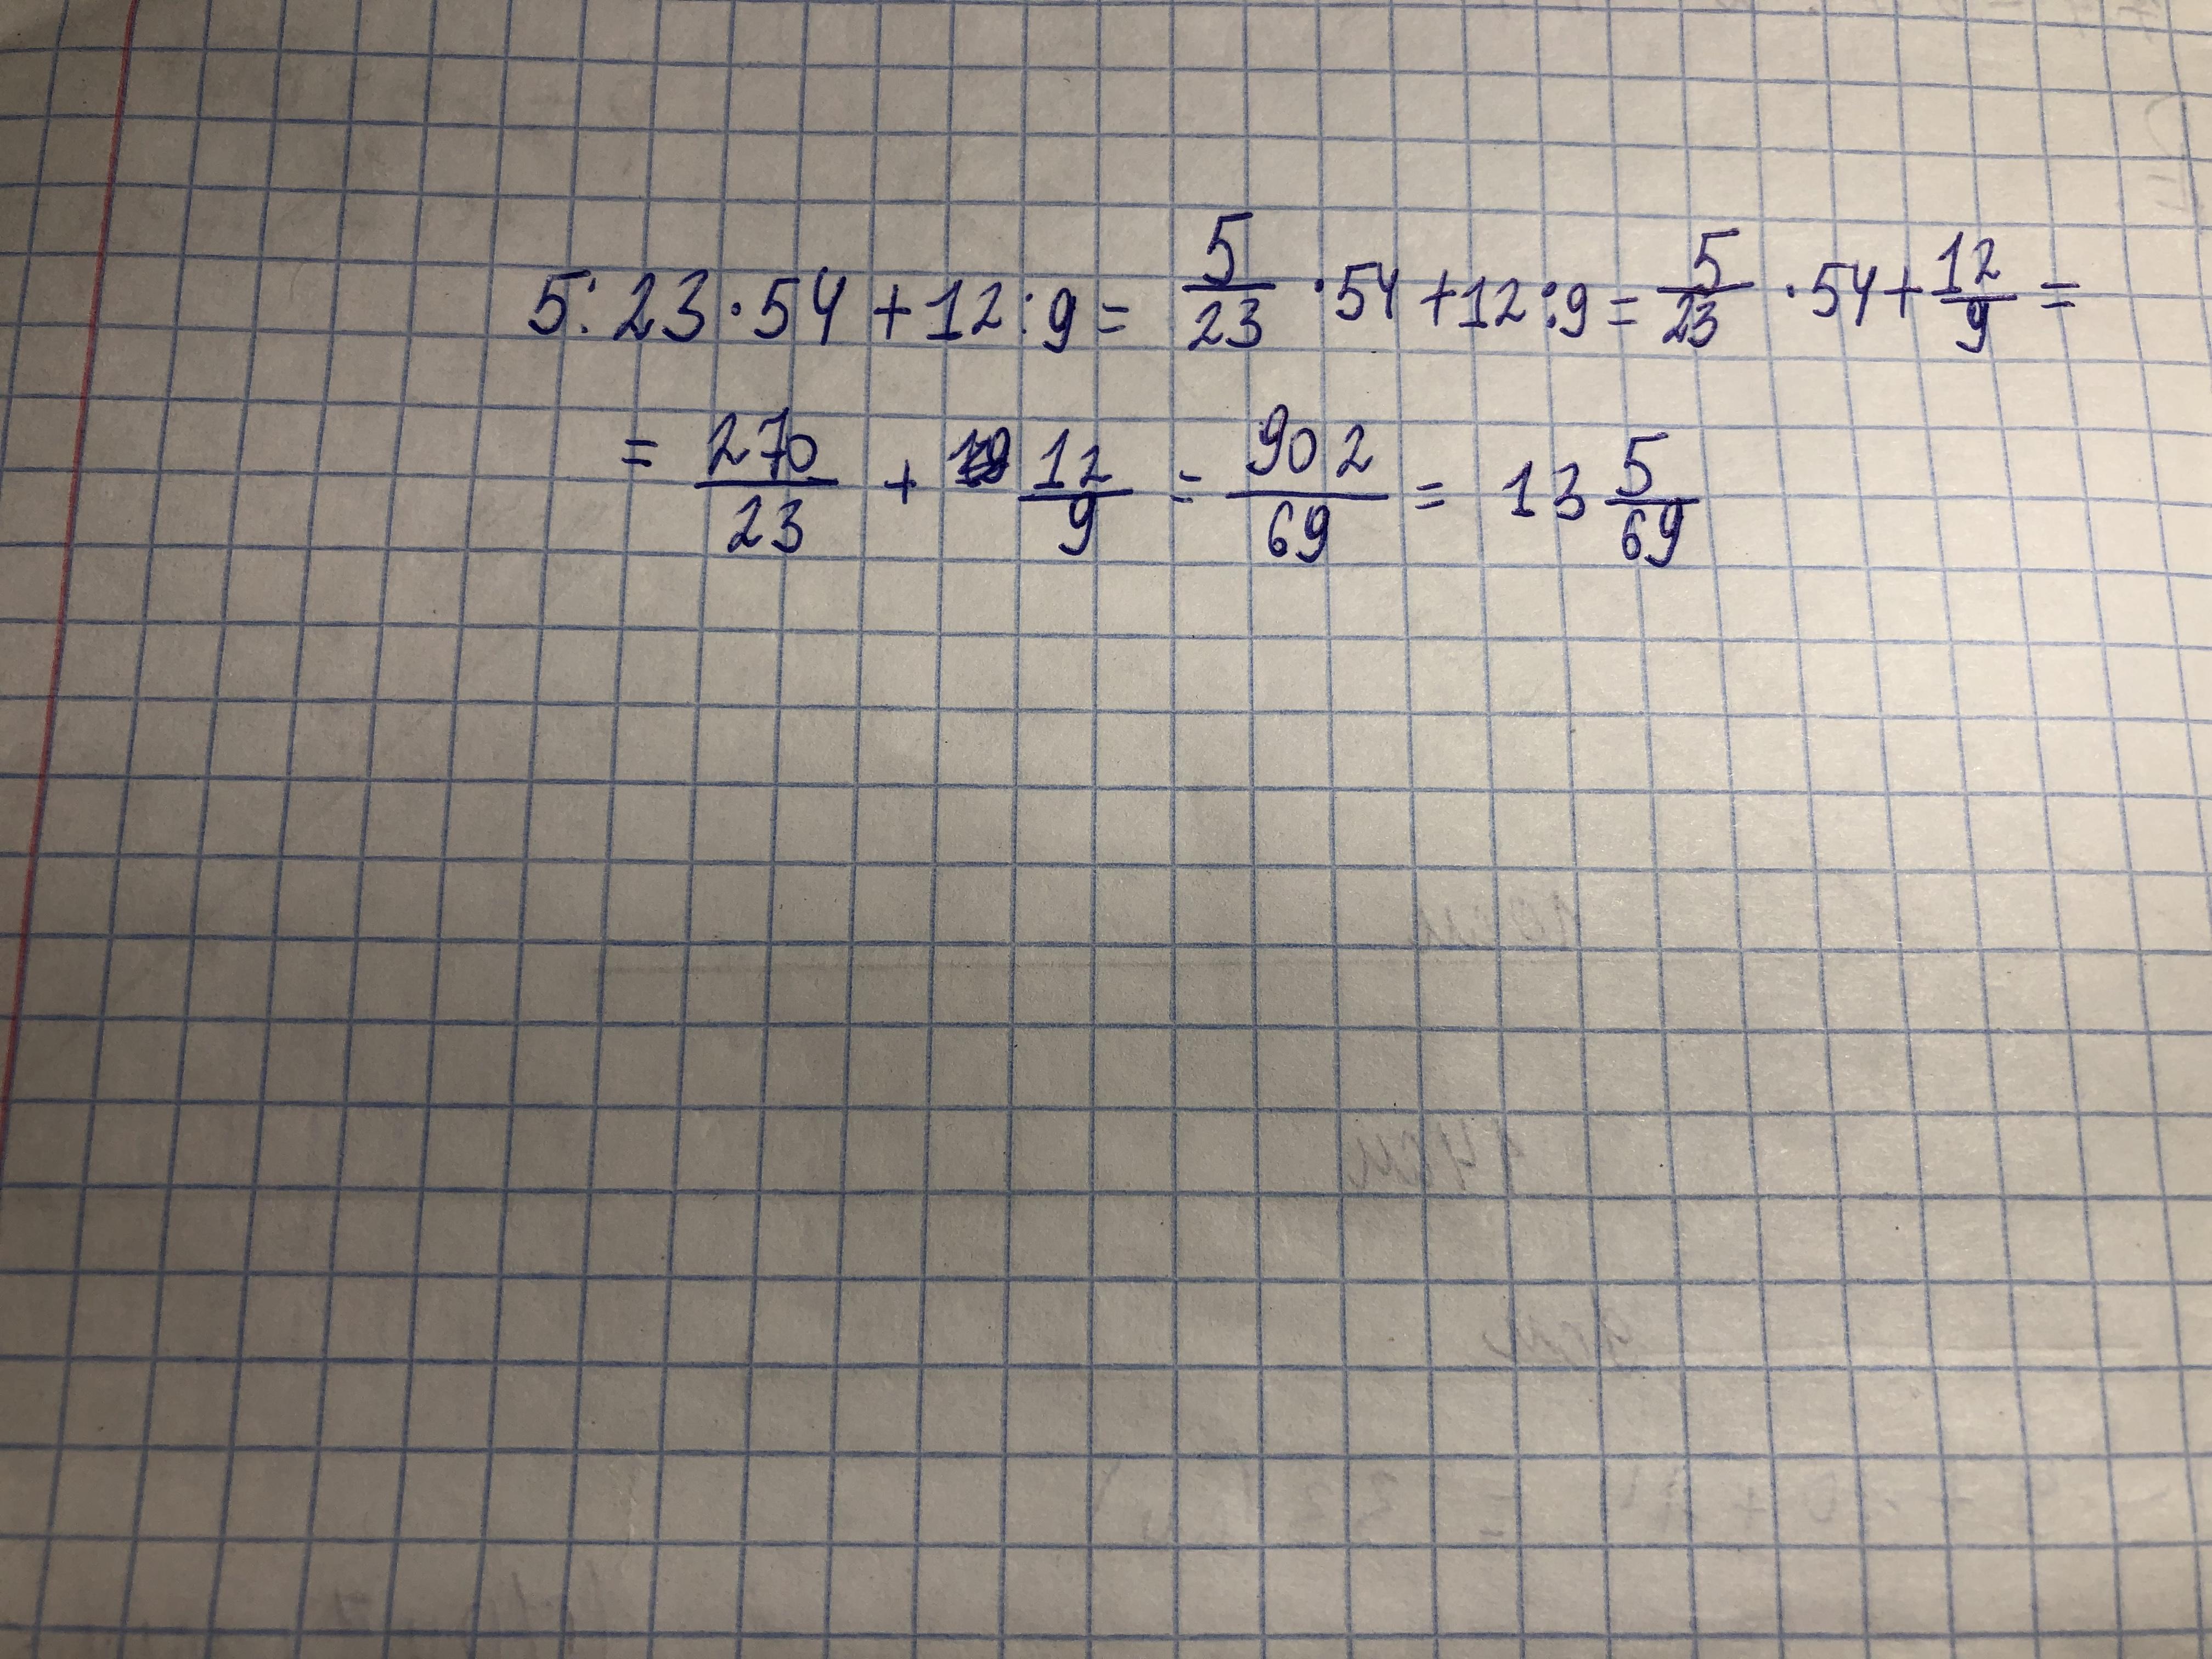 5:23·54+12:9=5/23·54+12:9=5/23·54+12/9=
=270/23+12/9=902/69=13 5/69